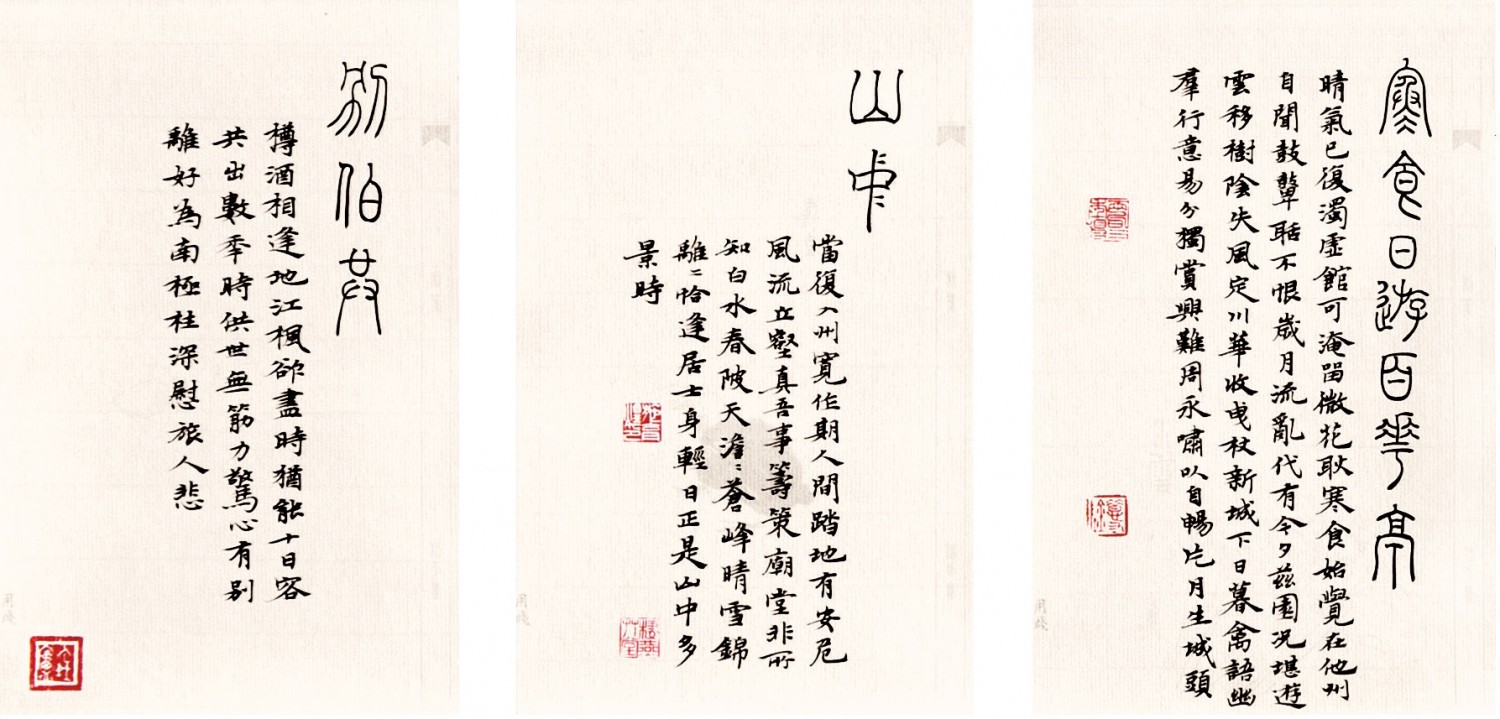 寒食日遊百花亭
晴氣已復濁虛館可淹留微花耿寒食始覺在他州
自聞鼓鼙聒不恨歲月流亂代有今夕茲園況堪遊
雲移樹陰失風定川華收曳杖新城下日暮禽語幽
羣行意易分獨賞興難周永嘯以自暢片月生城頭
山中
當復入州寬作期人間踏地有安危
風流丘壑真吾事籌策廟堂非所
知白水春陂天澹〻蒼峰晴雪錦
離〻恰逢居士身輕日正是山中多
景時
別伯共
樽酒相逢地江楓欲盡時猶能十日容
共出數秊時供世無筋力驚心有別
離好為南極柱深慰旅人悲